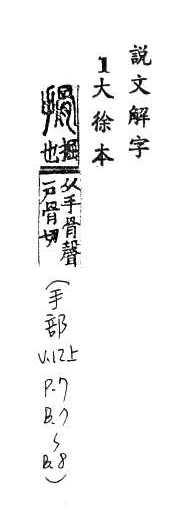 說文解字
1大徐本
搰 掘也 从手骨聲 戸骨切 (手部 V.12上 P.7 B.7 ~ B.8)